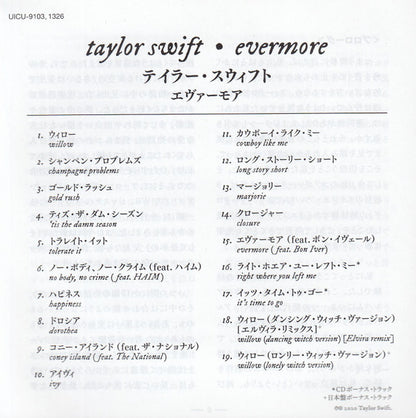 UICU-9103, 1326
taylor swift • evermore
テイラー・スウィフト
エヴァーモア
1. ウィロー
willow
2. シャンペン・プロブレムズ
champagne problems
3. ゴールド・ラッシュ
gold rush
4. ティズ・ザ・ダム・シーズン
'tis the damn season
5. トラレイト・イット
tolerate it
6. ノー・ボディ, ノー・クライム (feat. ハイム)
no body, no crime ( feat. HAIM )
7. ハピネス
happiness
8. ドロシア
dorothea
9. コニー・アイランド (feat. ザ・ナショナル)
coney island ( feat. The National )
10. アイヴィ
ivy
11. カウボーイ・ライク・ミー
cowboy like me
12. ロング・ストーリー・ショート
long story short
13. マージョリー
marjorie
14. クロージャー
closure
15. エヴァーモア (feat. ボン・イヴェール)
evermore ( feat. Bon Iver )
16. ライト・ホエア・ユー・レフト・ミー*
right where you left me
17. イッツ・タイム・トゥ・ゴー*
it's time to go
18. ウィロー (ダンシング・ウィッチ・ヴァージョン)
[エルヴィラ・リミックス]⁺
willow (dancing witch version) [Elvira remix]
19. ウィロー (ロンリー・ウィッチ・ヴァージョン)⁺
willow (lonely witch version)
*CDボーナス・トラック
⁺日本盤ボーナス・トラック
℗© 2020 Taylor Swift.